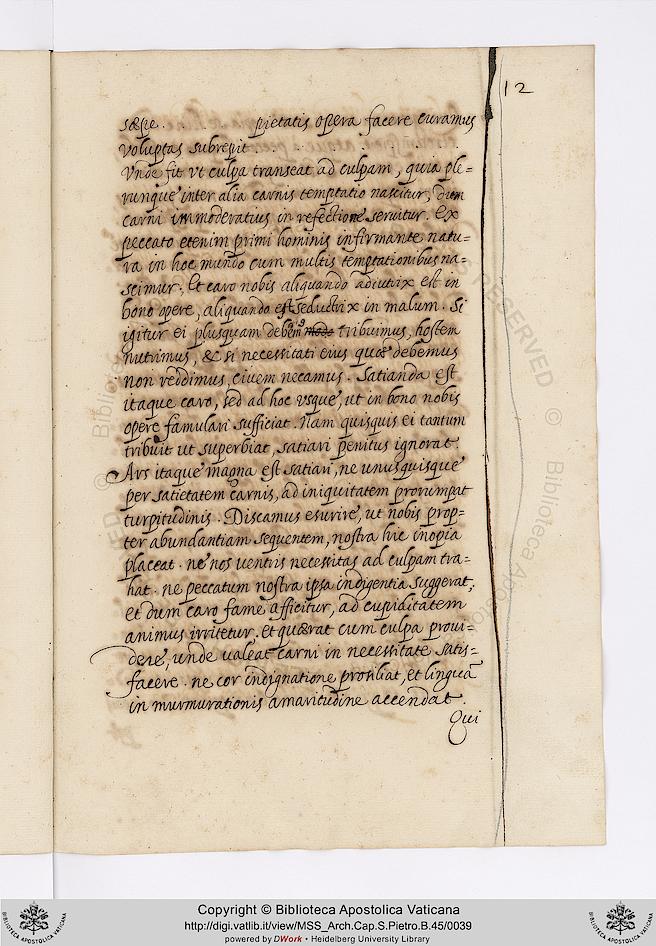 12
sæpe. pietatis opera facere curamus
voluptas subrepit
Vnde fit vt culpa transeat ad culpam, quia ple=
runque inter alia carnis temptatio nascitur, dum
carni immoderatius in refectione servitur. Ex
peccato etenim primi hominis infirmante natu=
ra in hoc mundo cum multis temptationibus na=
scimur. Et caro nobis aliquando adiutrix est in
bono opere, aliquando est seductrix in malum. Si
igitur ei plusquam debem9 tribuimus, hostem
nutrimus, & si necessitati eius quæ debemus
non reddimus, civem necamus. Satianda est
itaque caro, sed ad hoc vsque, ut in bono nobis
opere famulari sufficiat. Nam quisquis ei tantum
tribuit ut superbiat, satiari penitus ignorat.
Ars itaque magna est satiari, ne unusquisque
per satietatem carnis, ad iniquitatem prorumpat
turpitudinis. Discamus esurire, ut nobis prop=
ter abundantiam sequentem, nostra hic inopia
placeat. ne nos ventris necessitas ad culpam tra=
hat. ne peccatum nostra ipsa indigentia suggerat,
et dum caro fame afficitur, ad cupiditatem
animus irritetur. et quærat cum culpa provi=
dere, unde valeat carni in necessitate satis=
facere. ne cor indignatione prosiliat, et linguā
in murmurationis amaritudine accendat.
Qui
Copyright © Biblioteca Apostolica Vaticana
http://digi.vatlib.it/view/MSS_Arch.Cap.S.Pietro.B.45/0039
powered by DWork • Heidelberg University Library